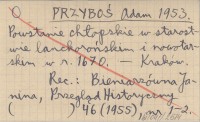 O PRZYBOŚ Adam 1953.
Powstanie chłopskie w staros-
twie lanckorońskim i nowotar-
skim w r. 1670. — Krakow.
Rec.: Bieniarzówna Ja-
nina, Przegląd Historyczny
( ) 46 (1955), nr. 1-2.